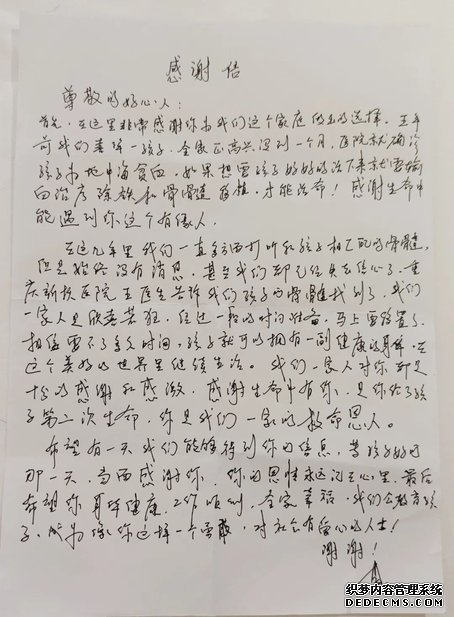 感谢信
尊敬的好心人：
首先，在这里非常感谢你为我们这个家庭做出的选择。五年
前我们喜得一孩子，全家正高兴得到一个月，医院就确诊
孩子为地中海贫血，如果想要孩子好好的活下来就要输
血治疗除铁和骨髓移植，才能活命！感谢生命中
能遇到你这个有缘人。
在这九年里我们一直多方面打听和孩子相匹配的骨髓，
但是始终没有消息，甚至我们都已经失去信心了，重
庆新桥医院王医生告诉我们孩子的骨髓找到了，我们
一家人是欣喜若狂，经过一段的时间准备，马上要移置了，
相信要不了多久时间，孩子就可以拥有一副健康的身体，在
这个美好的世界里继续生活。我们一家人对你都是
十分的感谢和感激，感谢生命中有你，是你给了孩
子第二次生命，你是我们一家的救命恩人。
希望有一天我们能够得到你的信息，等孩子好的
那一天，当面感谢你，你的恩情永远记在心里，最后
希望你身体健康，工作顺利，全家幸福，我们会教育孩
子，成为像你这样一个勇敢，对社会有爱心的人士！
谢谢！
织梦内容管理系统
DEDECMS.COM